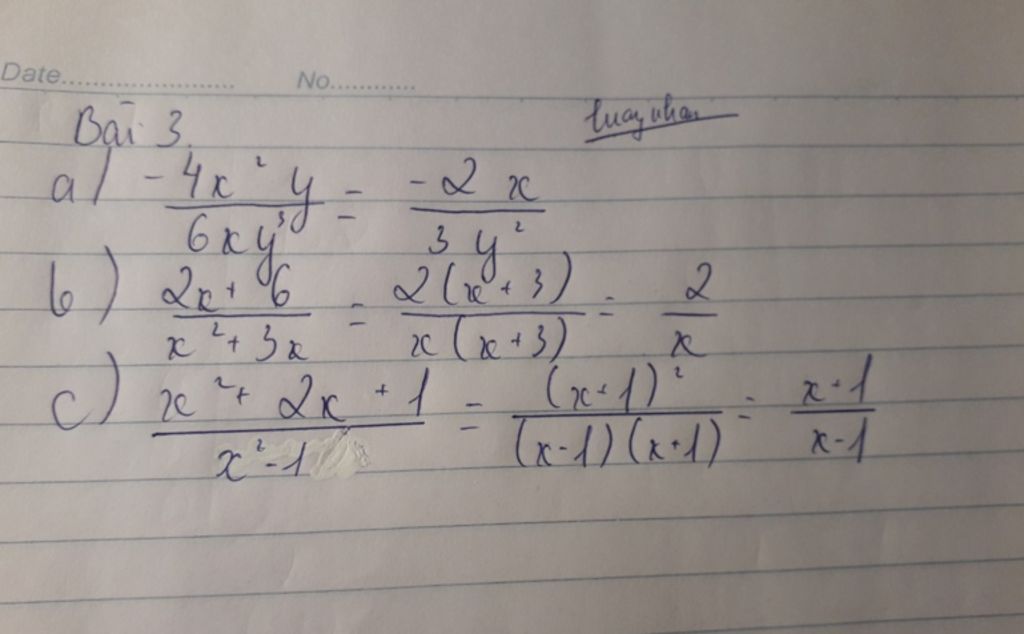 Date.......................... No............
Bài 3.
a) \frac{-4x^2y}{6xy^3} = \frac{-2x}{3y^2}
b) \frac{2x+6}{x^2+3x} = \frac{2(x+3)}{x(x+3)} = \frac{2}{x}
c) \frac{x^2+2x+1}{x^2-1} = \frac{(x+1)^2}{(x-1)(x+1)} = \frac{x+1}{x-1}